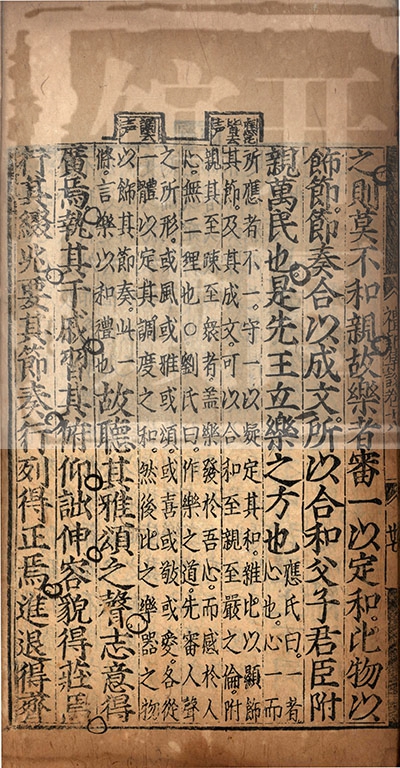 之則莫不和親故樂者審一以定和比物以
飾節節奏合以成文所以合和父子君臣附
親萬民也是先王立樂之方也應氏曰一者
心也心一而
所應者不一守一以凝定其和雜比以顯飾
其節及其成文可以合和至親至嚴之倫附
親其至疎至衆者蓋樂發於吾心而感於人
心無二理也○劉氏曰作樂之道先審人聲
之所形或風或雅或頌或喜或敬或愛各從
一體以定其調度之和然後比之樂器之物
以飾其節奏此一
條言樂以和禮也
故聽其雅頌之聲志意得
廣焉執其干戚習其俯仰詘伸容貌得莊焉
行其綴兆要其節奏行列得正焉進退得齊